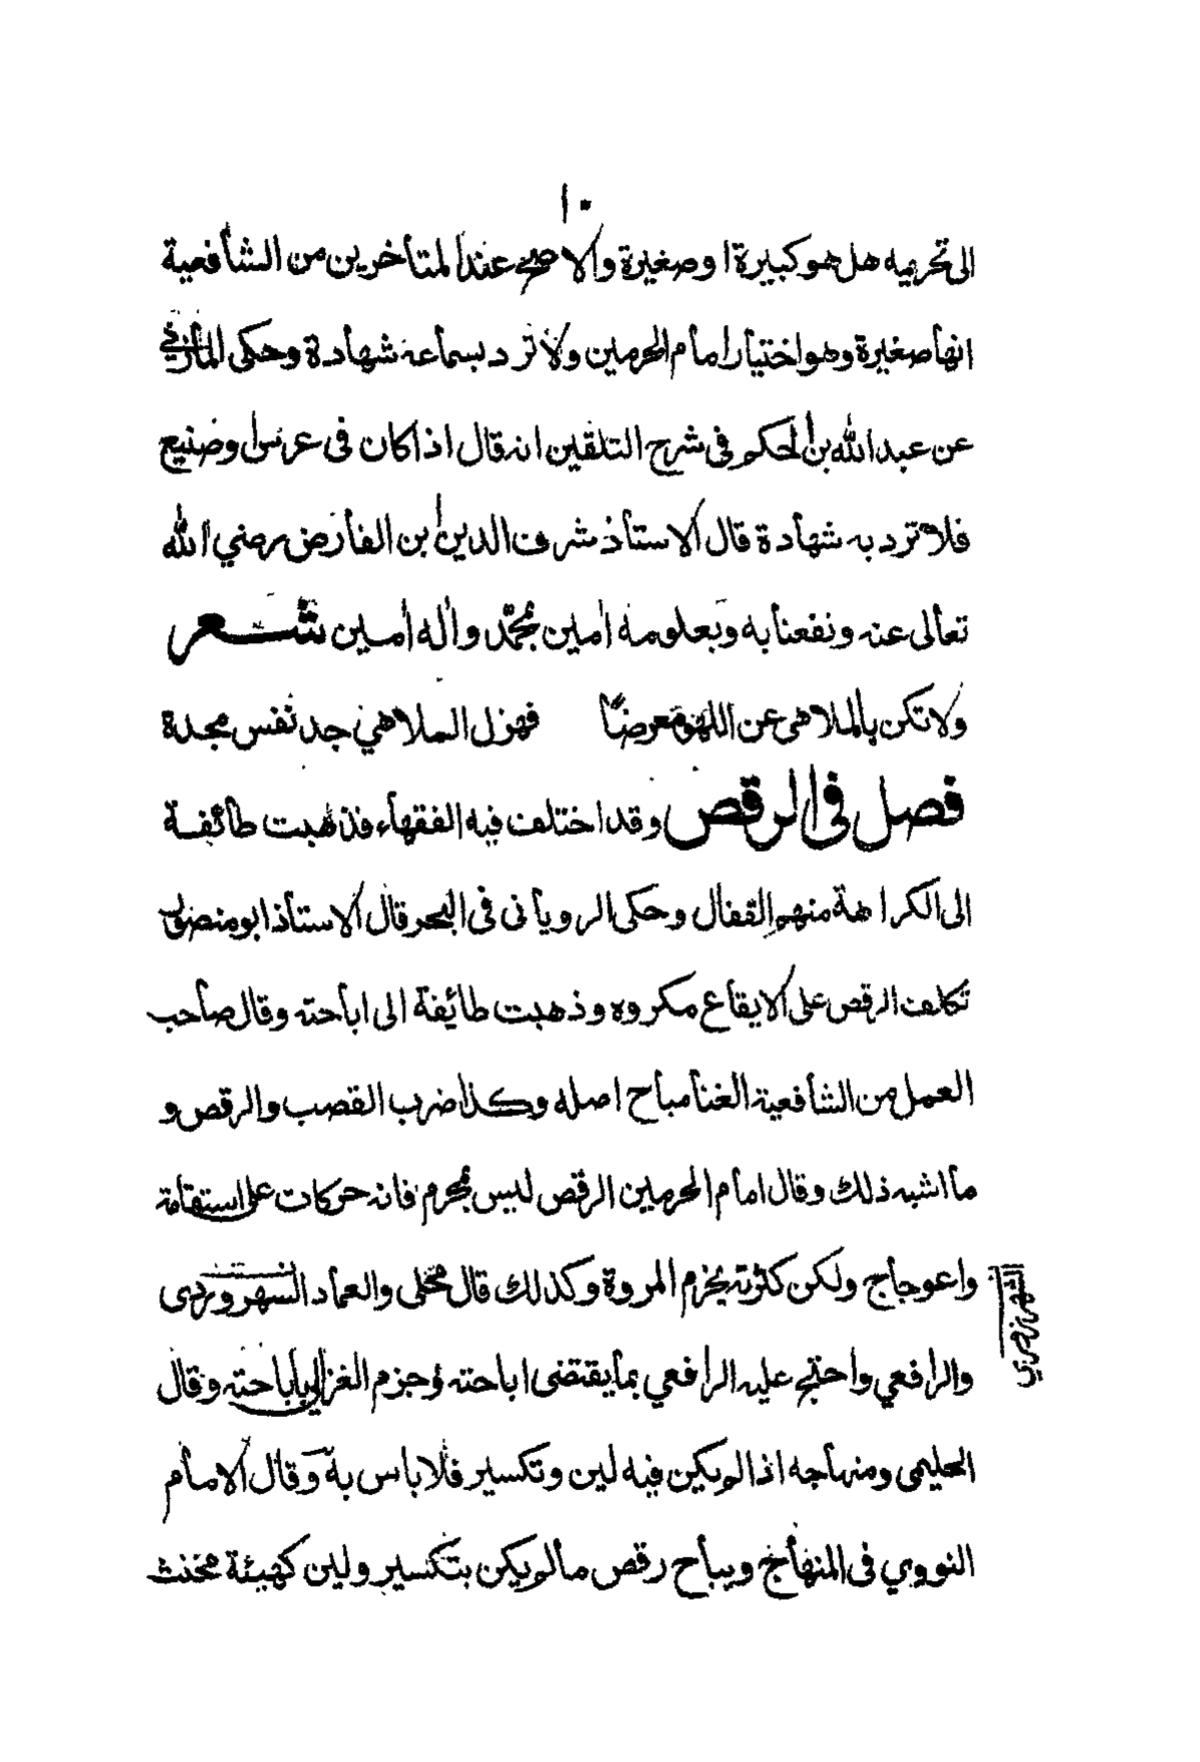 ١٠
الى تحريمه هل هو كبيرة او صغيرة والاصح عند المتأخرين من الشافعية
انها صغيرة وهو اختيار امام الحرمين ولا ترد بسماعه شهادة وحكى المازري
عن عبد الله بن الحكم فى شرح التلقين انه قال اذا كان فى عرس او صنيع
فلا ترد به شهادة قال الاستاذ شرف الدين ابن الفارض رضي الله
تعالى عنه ونفعنا به وبعلومه امين بمحمد واله امين شعر
ولا تكن بالملاهى عن اللهو معرضا فهزل الملاهي جد نفس مجدة
فصل فى الرقص وقد اختلف فيه الفقهاء فذهبت طائفة
الى الكراهة منهم القفال وحكى الرويانى فى البحر قال الاستاذ ابو منصور
تكلف الرقص على الايقاع مكروه وذهبت طائفة الى اباحته وقال صاحب
العمل من الشافعية الغنا مباح اصله وكذا ضرب القصب والرقص و
ما اشبه ذلك وقال امام الحرمين الرقص ليس بمحرم فانه حركات على استقامة
واعوجاج ولكن كثرته يخرم المروة وكذلك قال محلى والعماد السهروردى
والرافعي واحتج عليه الرافعي بما يقتضى اباحته وجزم الغزالي باباحته وقال
الحليمى ومنهاجه اذا لم يكن فيه لين وتكسير فلا باس به وقال الامام
النووي فى المنهاج ويباح رقص مالم يكن بتكسير ولين كهيئة مخنث